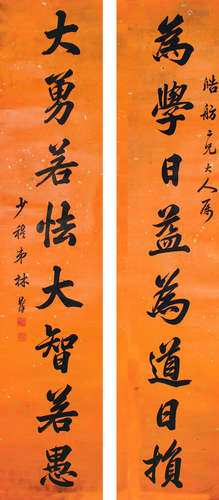 為學日益為道日損
皓舫二兄大人屬
大勇若怯大智若愚
少穆弟林